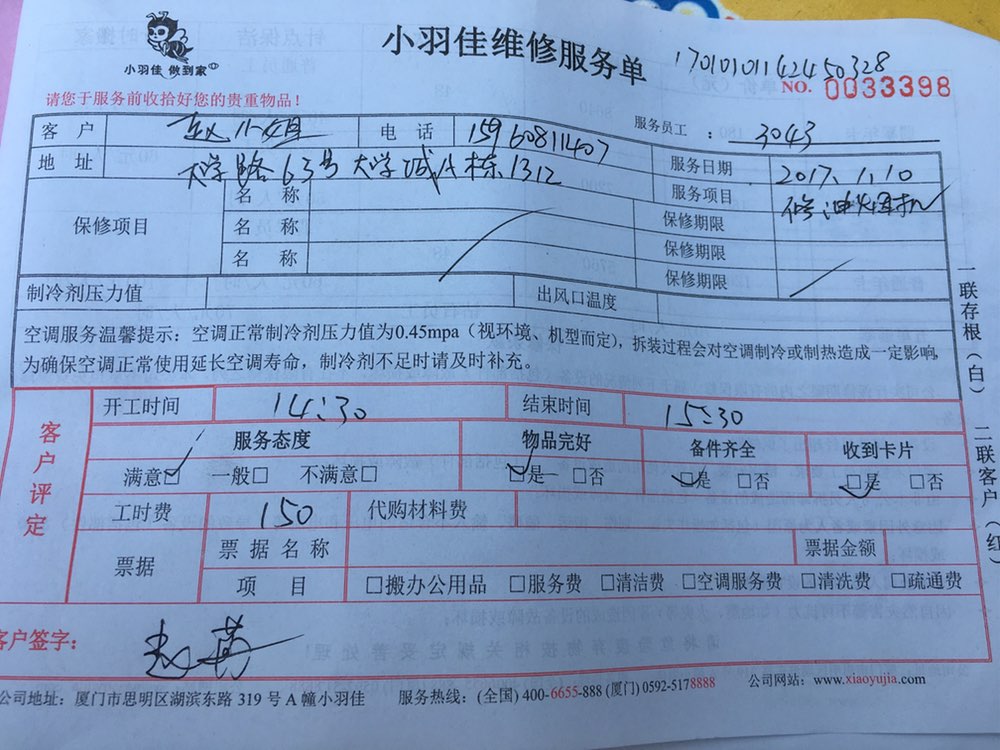 小羽佳 做到家
小羽佳维修服务单
17010101142450328
NO. 0033398
请您于服务前收拾好您的贵重物品！
服务员工 : 3043
客 户 赵小姐 电 话 15960811407
地 址 大学路63号大学城A栋1312 服务日期 2017.1.10
服务项目 修油烟机
保修项目
名 称 保修期限
名 称 保修期限
名 称 保修期限
制冷剂压力值 出风口温度
空调服务温馨提示：空调正常制冷剂压力值为0.45mpa（视环境、机型而定），拆装过程会对空调制冷或制热造成一定影响,
为确保空调正常使用延长空调寿命，制冷剂不足时请及时补充。
一联存根（白） 二联客户（红）
客户评定
开工时间 14:30 结束时间 15:30
服务态度 物品完好 备件齐全 收到卡片
满意☑ 一般□ 不满意□ ☑是 □否 ☑是 □否 ☑是 □否
工时费 150 代购材料费
票据 票据名称 票据金额
项 目 □搬办公用品 □服务费 □清洁费 □空调服务费 □清洗费 □疏通费
客户签字：
公司地址：厦门市思明区湖滨东路 319 号 A 幢小羽佳 服务热线：(全国) 400-6655-888 (厦门) 0592-5178888 公司网站：www.xiaoyujia.com